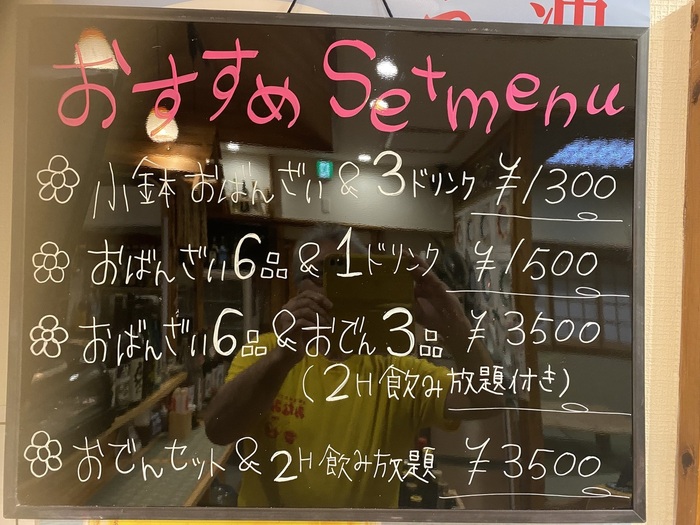 おすすめ Setmenu
小鉢おばんざい&3ドリンク ¥1300
おばんざい6品&1ドリンク ¥1500
おばんざい6品&おでん3品 ¥3500
(2H飲み放題付き)
おでんセット&2H飲み放題 ¥3500